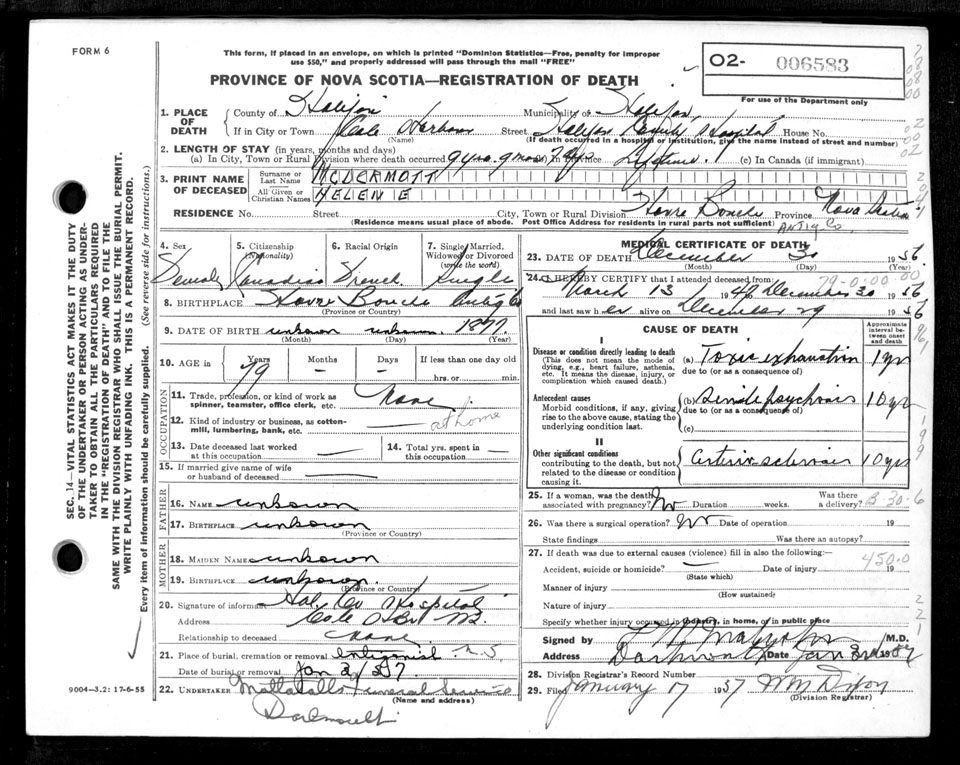 FORM 6
This form, if placed in an envelope, on which is printed "Dominion Statistics—Free, penalty for improper
use $50," and properly addressed will pass through the mail "FREE"
PROVINCE OF NOVA SCOTIA—REGISTRATION OF DEATH
O2- 006583
For use of the Department only
1. PLACE OF DEATH
County of Halifax Municipality of Halifax
If in City or Town Cole Harbour Street Halifax County Hospital House No.
(Name) (If death occurred in a hospital or institution, give the name instead of street and number)
2. LENGTH OF STAY (in years, months and days)
(a) In City, Town or Rural Division where death occurred 9 yrs. 9 mos. Lifetime. (c) In Canada (if immigrant)
3. PRINT NAME OF DECEASED
Surname or Last Name McDERMOTT
All Given or Christian Names HELEN E
RESIDENCE No. Street City, Town or Rural Division Havre Bouche Province Nova Scotia
(Residence means usual place of abode. Post Office Address for residents in rural parts not sufficient) ANTIG. Co.
4. Sex Female
5. Citizenship (Nationality) Canadian
6. Racial Origin French
7. Single, Married, Widowed or Divorced (write the word) Single
8. BIRTHPLACE Havre Bouche Antig Co
(Province or Country)
9. DATE OF BIRTH unknown unknown 1877
(Month) (Day) (Year)
10. AGE in Years 79 Months — Days — If less than one day old
hrs. or min.
OCCUPATION
11. Trade, profession, or kind of work as spinner, teamster, office clerk, etc. None
12. Kind of industry or business, as cotton-mill, lumbering, bank, etc. at home
13. Date deceased last worked at this occupation —
14. Total yrs. spent in this occupation —
15. If married give name of wife or husband of deceased —
FATHER
16. NAME unknown
17. BIRTHPLACE unknown
(Province or Country)
MOTHER
18. MAIDEN NAME unknown
19. BIRTHPLACE unknown.
(Province or Country)
20. Signature of informant Hal. Co Hospital
Address Cole Hbr NS
Relationship to deceased None
21. Place of burial, cremation or removal Antigonish N.S.
Date of burial or removal Jan 2/57
22. UNDERTAKER Mattatalls Funeral Service
(Name and address)
Dartmouth
9004—3.2: 17-6-55
MEDICAL CERTIFICATE OF DEATH
23. DATE OF DEATH December 30 1956.
(Month) (Day) (Year)
79-0:00.00
24. I HEREBY CERTIFY that I attended deceased from:
March 13 1947 December 30 1956
and last saw her alive on December 29 1956
CAUSE OF DEATH
Approximate interval between onset and death
I
Disease or condition directly leading to death (a) Toxic exhaustion 1 yr
(This does not mean the mode of dying, e.g., heart failure, asthenia, etc. It means the disease, injury, or complication which caused death.)
due to (or as a consequence of)
Antecedent causes (b) Senile psychosis 10 yr
Morbid conditions, if any, giving rise to the above cause, stating the underlying condition last.
due to (or as a consequence of)
(c)
II
Other significant conditions Arterio-sclerosis 10 yrs
contributing to the death, but not related to the disease or condition causing it.
25. If a woman, was the death associated with pregnancy? No Duration weeks. Was there a delivery? B-30-6
26. Was there a surgical operation? No Date of operation 19
State findings Was there an autopsy?
27. If death was due to external causes (violence) fill in also the following:— 450.0
Accident, suicide or homicide? — Date of injury 19
(State which)
Manner of injury
(How sustained)
Nature of injury
Specify whether injury occurred in industry, in home, or in public place
Signed by M.D.
Address Dartmouth Date Jan 3rd 1957
28. Division Registrar's Record Number
29. Filed January 17 1957 W M Dixon
(Division Registrar)
SEC. 14—VITAL STATISTICS ACT MAKES IT THE DUTY
OF THE UNDERTAKER OR PERSON ACTING AS UNDER-
TAKER TO OBTAIN ALL THE PARTICULARS REQUIRED
IN THE "REGISTRATION OF DEATH" AND TO FILE THE
SAME WITH THE DIVISION REGISTRAR WHO SHALL ISSUE THE BURIAL PERMIT.
WRITE PLAINLY WITH UNFADING INK. THIS IS A PERMANENT RECORD.
Every item of information should be carefully supplied. (See reverse side for instructions.)